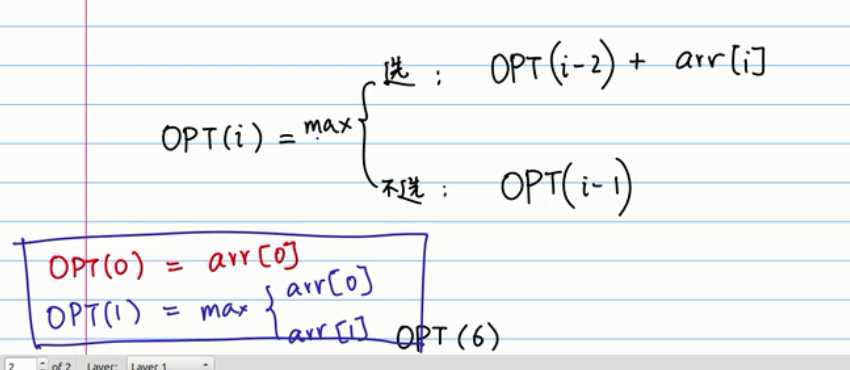 选： OPT(i-2) + arr[i]
OPT(i) = max
不选： OPT(i-1)
OPT(0) = arr[0]
OPT(1) = max arr[0]
arr[1]
OPT(6)
2 of 2 Layer: Layer 1